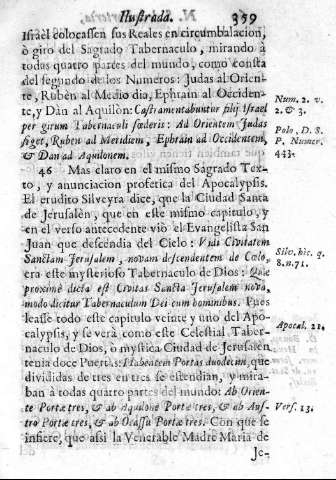 Ilustrada. 359
Israèl colocassen sus Reales en circumbalacion,
ò giro del Sagrado Tabernaculo, mirando à
todas quatro partes del mundo, como consta
del segundo de los Numeros: Judas al Orien-
te, Rubèn al Medio dia, Ephraìn al Occiden-
te, y Dàn al Aquilòn: Castramentabuntur filij Israel
per girum Tabernaculi fœderis: Ad Orientem Judas
figet, Ruben ad Meridiem, Ephràin ad Occidentem,
& Dan ad Aquilonem.
Num. 2. v.
2. & 3.
Polo, D. S.
P. Numer.
443.
46 Mas claro en el mismo Sagrado Tex-
to, y anunciacion profetica del Apocalypsis.
El erudito Silveyra dice, que la Ciudad Santa
de Jerusalèn, que en este mismo capitulo, y
en el verso antecedente viò el Evangelista San
Juan que descendia del Cielo: Vidi Civitatem
Sanctam Jerusalem, novam descendentem de Cœlo,
era este mysterioso Tabernaculo de Dios: Quæ
proximè dicta est Civitas Sancta Jerusalem nova,
modo dicitur Tabernaculum Dei cum hominibus. Pues
leasse todo este capitulo veinte y uno del Apo-
calypsis, y se verà como este Celestial Taber-
naculo de Dios, ò mystica Ciudad de Jerusalen
tenia doce Puertas: Habentem Portas duodecim, que
divididas de tres en tres se estendian, y mira-
ban à todas quatro partes del mundo: Ab Orien-
te Portæ tres, & ab Aquilone Portæ tres, & ab Aus-
tro Portæ tres, & ab Ocassu Portæ tres. Con que se
infiere, que assi la Venerable Madre Maria de
Silv. hìc. q.
8. n. 71.
Apocal. 21.
Vers. 13.
Je-